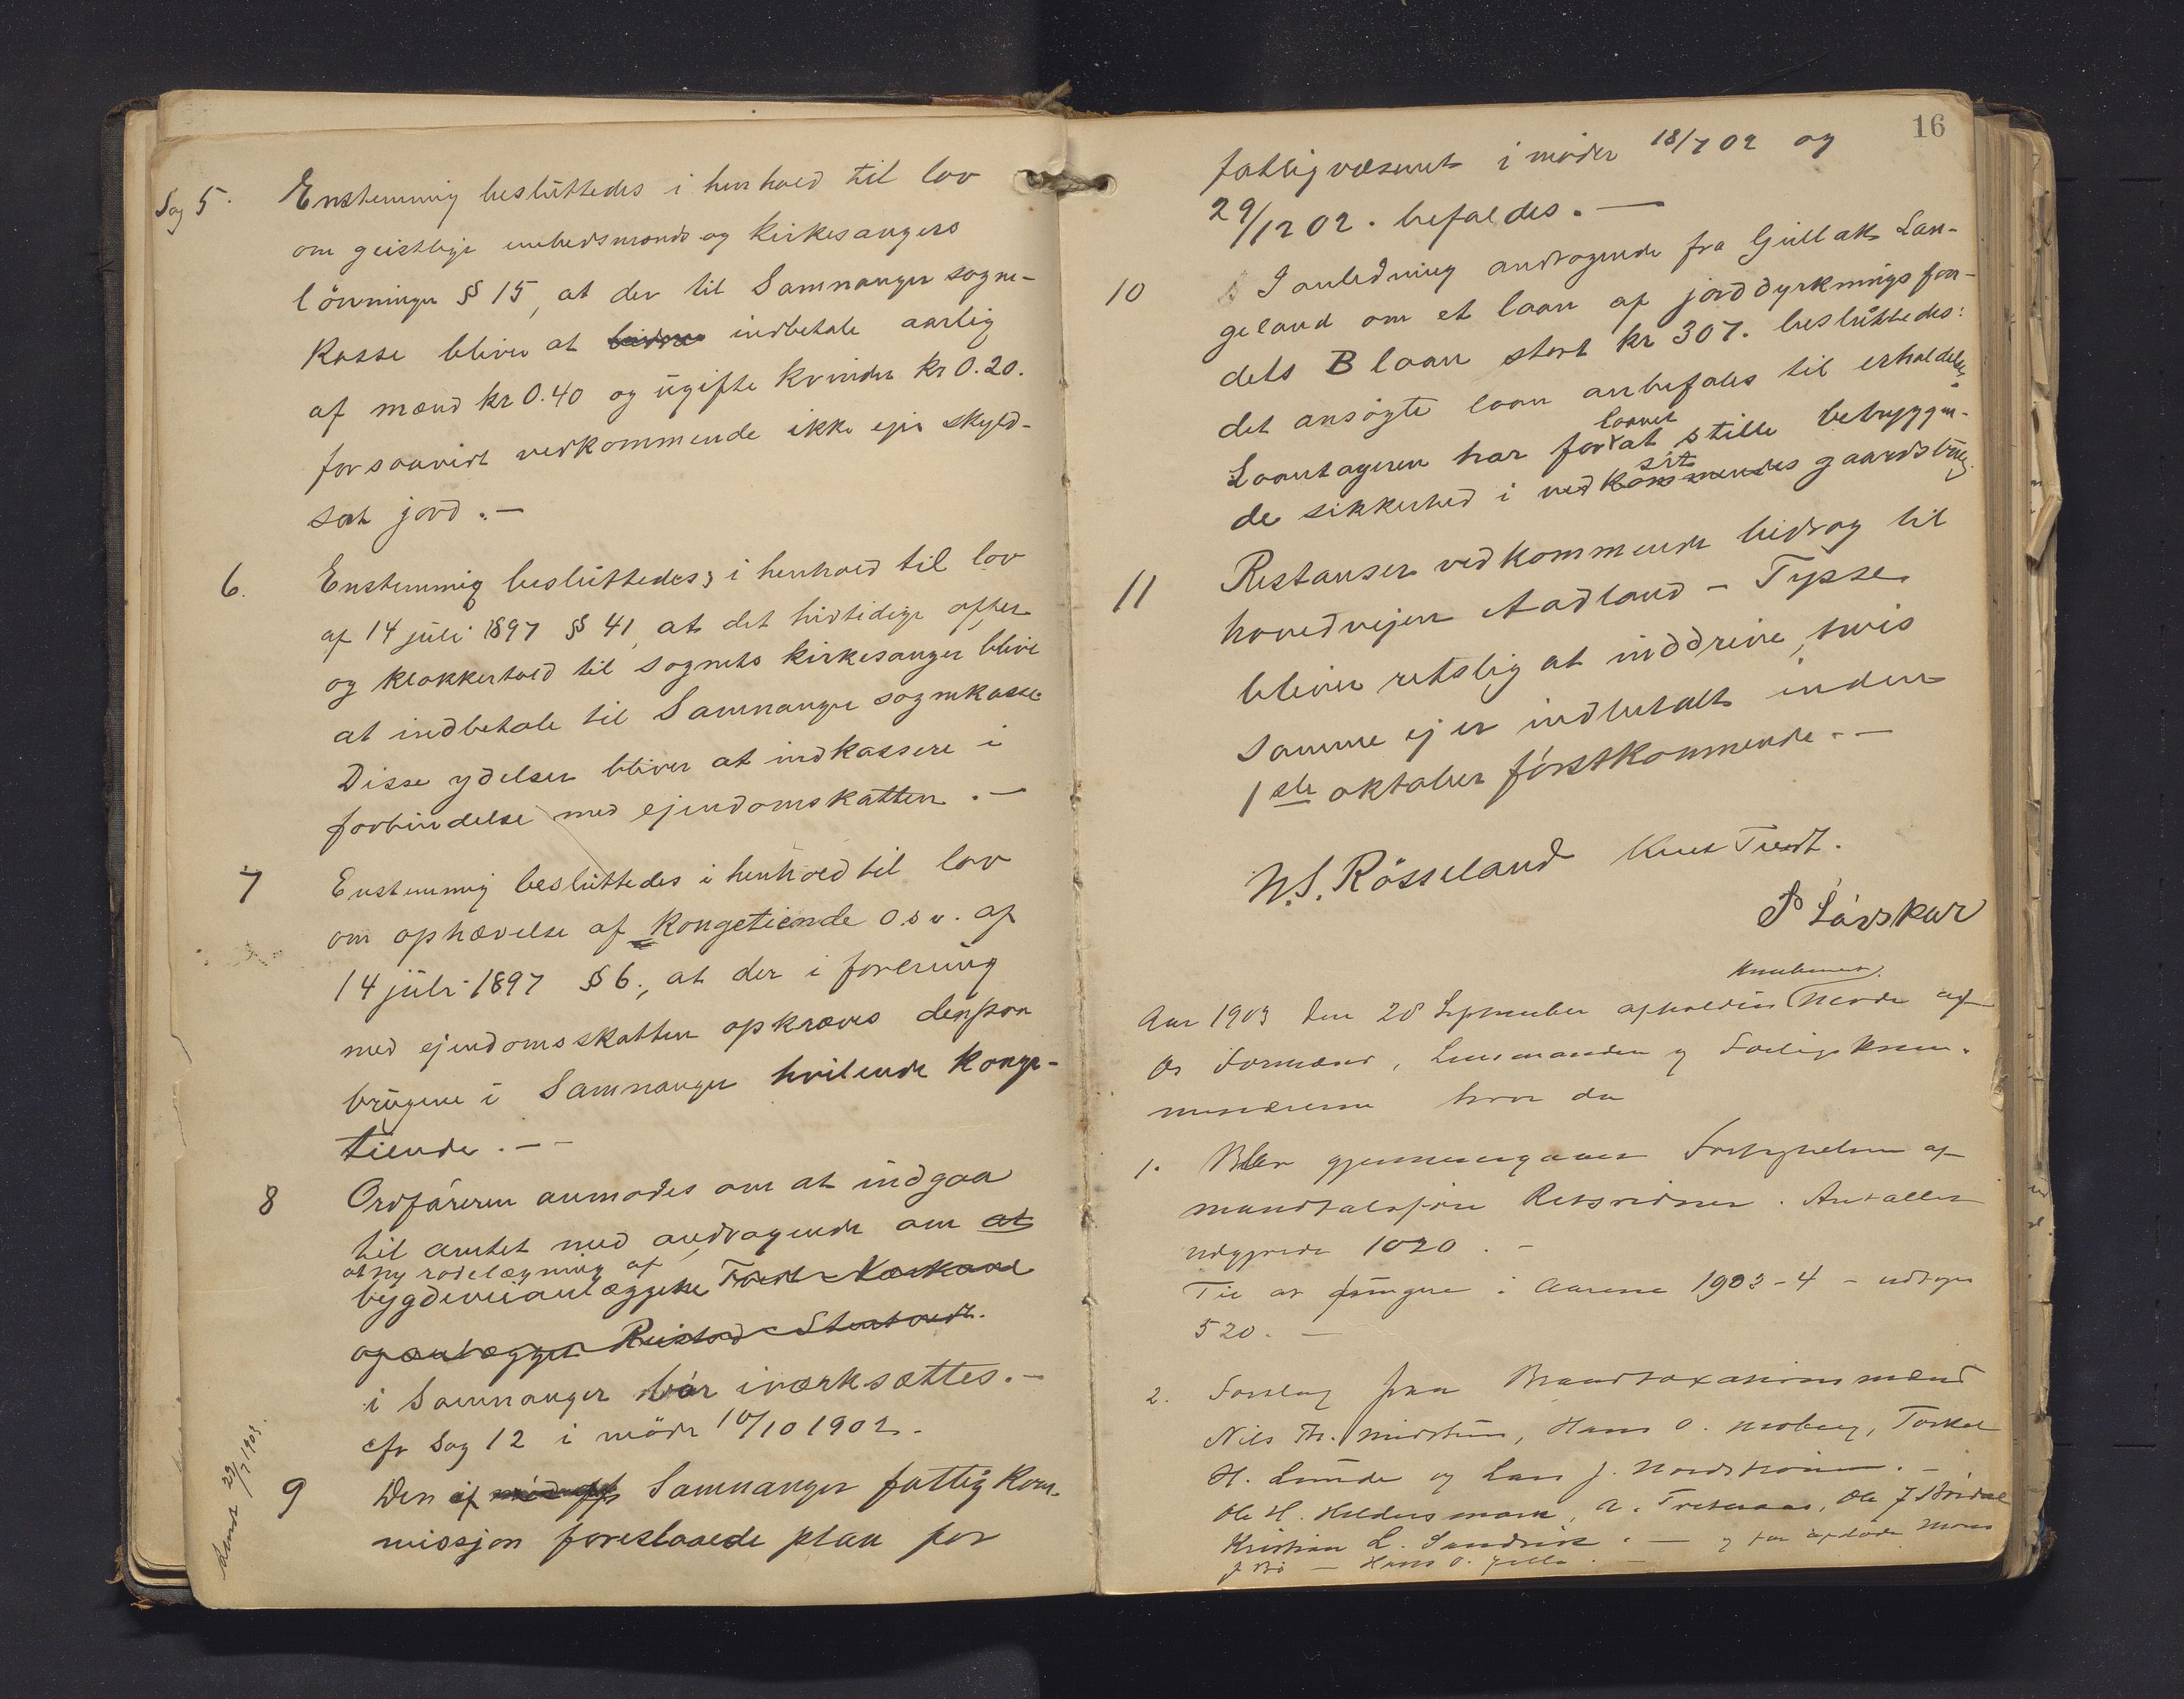 Sag 5. Enstemmig besluttedes i henhold til lov
om geistlige embedsmænds og kirkesangers
lönninger § 15, at der til Samnanger sogne-
kasse bliver at indbetale aarlig
af mænd kr 0.40 og ugifte kvinder kr 0.20.
forsaavidt vedkommende ikke ejer skyld-
sat jord.—
6. Enstemmig besluttedes, i henhold til lov
af 14 juli 1897 § 41, at det hidtidige offer
og klokkertold til sognets kirkesanger blive
at indbetale til Samnanger sognekasse
Disse ydelser bliver at indkassere i
forbindelse med ejendomskatten.—
7 Enstemmig besluttedes i henhold til lov
om ophævelse af Kongetiende o.s.v. af
14 juli 1897 § 6., at der i forening
med ejendomsskatten opkræves den paa
brugene i Samnanger hvilende konge-
tiende.—
8 Ordføreren anmodes om at indgaa
til amtet med andragende om at
at ny rodelægning af
bygdeveianlæggene
og anlægget Reistad - Stentveidt.
i Samnanger bör iværksættes.—
cfr Sag 12 i möde 10/10 1902.
Sendt 29/7 1903.
9 Den af Samnanger fattigkom-
missjon foreslaaede plan for
16
fattigvæsenet i möder 18/7 02 og
29/12 02. befaldes.—
10 I anledning andragende fra Gullak Lan-
geland om et laan af jorddyrkningsfon-
dets B laan stort kr 307. besluttedes:
det ansögte laan anbefales til erholdelse.
Laantageren har for laanet at stille betryggen-
de sikkerhed i sit gaardsbrug.
11 Restanser vedkommende bidrag til
hovedvejen Aadland - Tysse
bliver retslig at inddrive, hvis
samme ej er indbetalt inden
1ste oktober förstkommende.—
N.S. Rösseland Knut Tvedt.
P Lövskar
Aar 1903 den 28 September afholdtes Møde af
Formænd, Lensmanden og Fattigkom-
missærerne hvor da
1. Blev gjennemgaaet Fortegnelsen af
mandtalsførte Retsvidner. Antallet
udgjorde 1020.—
Til at fungere i Aarene 1903-4 - udtoges
520.—
2. Forslag paa Brandtaxationsmænd
Nils Th. Hans O. Moberg, Torkel
H. Lunde og Lars J. Nordstrønen.—
Ole H. A. Ole J
Kristian L. Sandvik.— og for afdøde Mons
J Bö — Hans O.